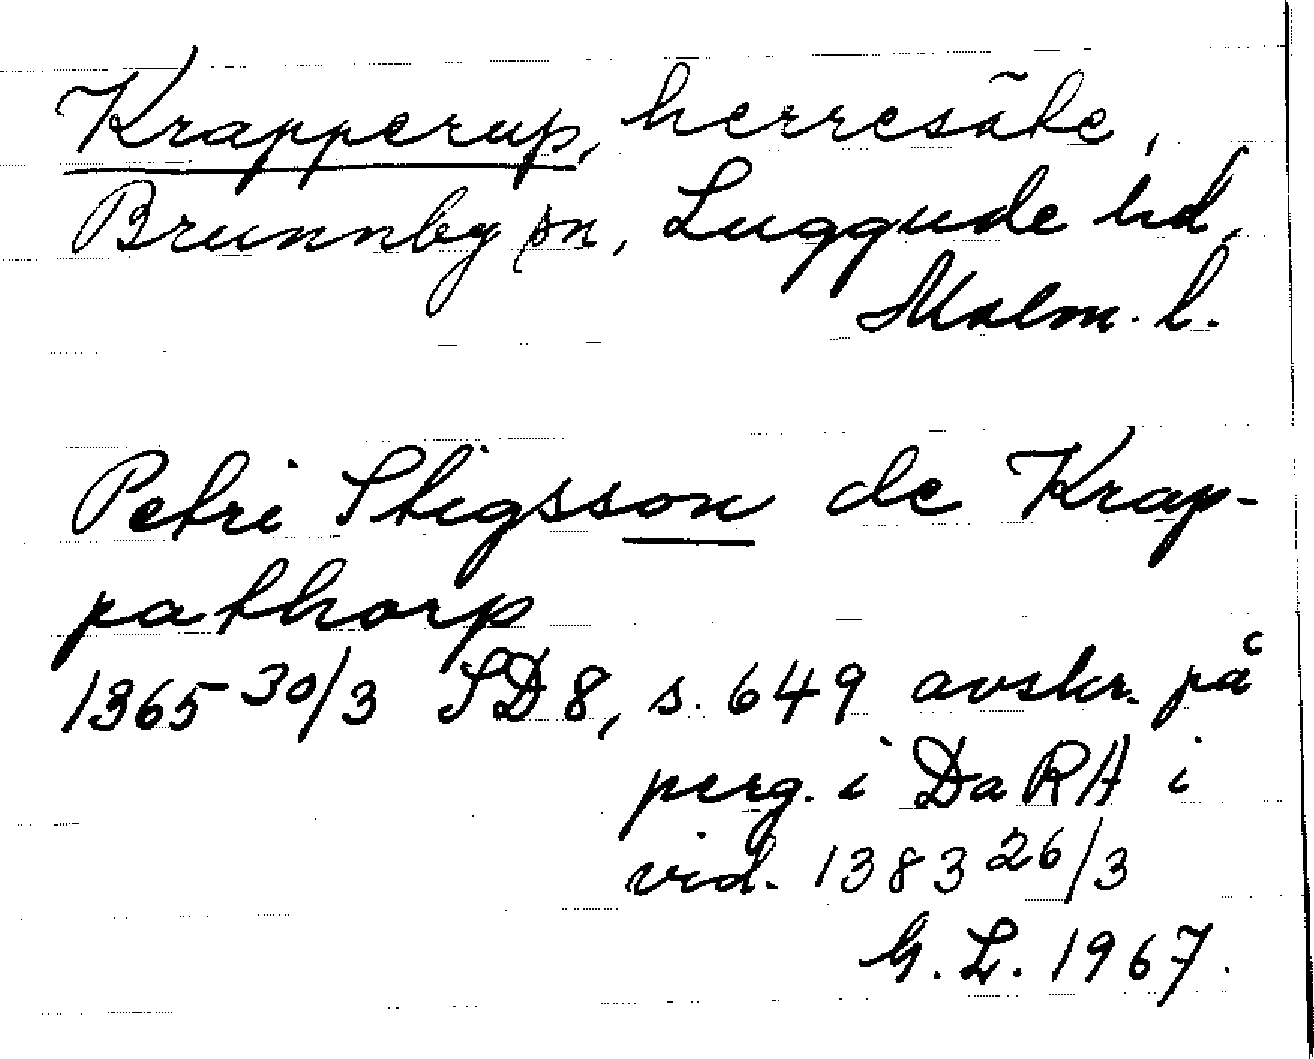 Krapperup, herresäte,
Brunnby sn, Luggude hd,
Malm. l.
Petri Stigsson de Krap-
pathorp
1365 30/3 SD 8, s. 649 avskr. på
perg. i DaRA i
vid. 1383 26/3
G. L. 1967.